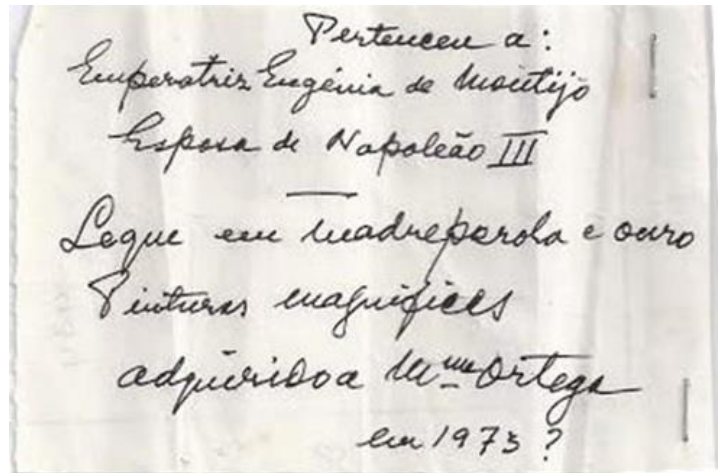 Pertenceu a:
Emperatriz Eugénia de Montijo
Esposa de Napoleão III
Leque em madreperola e ouro
Pinturas magnificas
adquirido a Mme Ortega
em 1973?